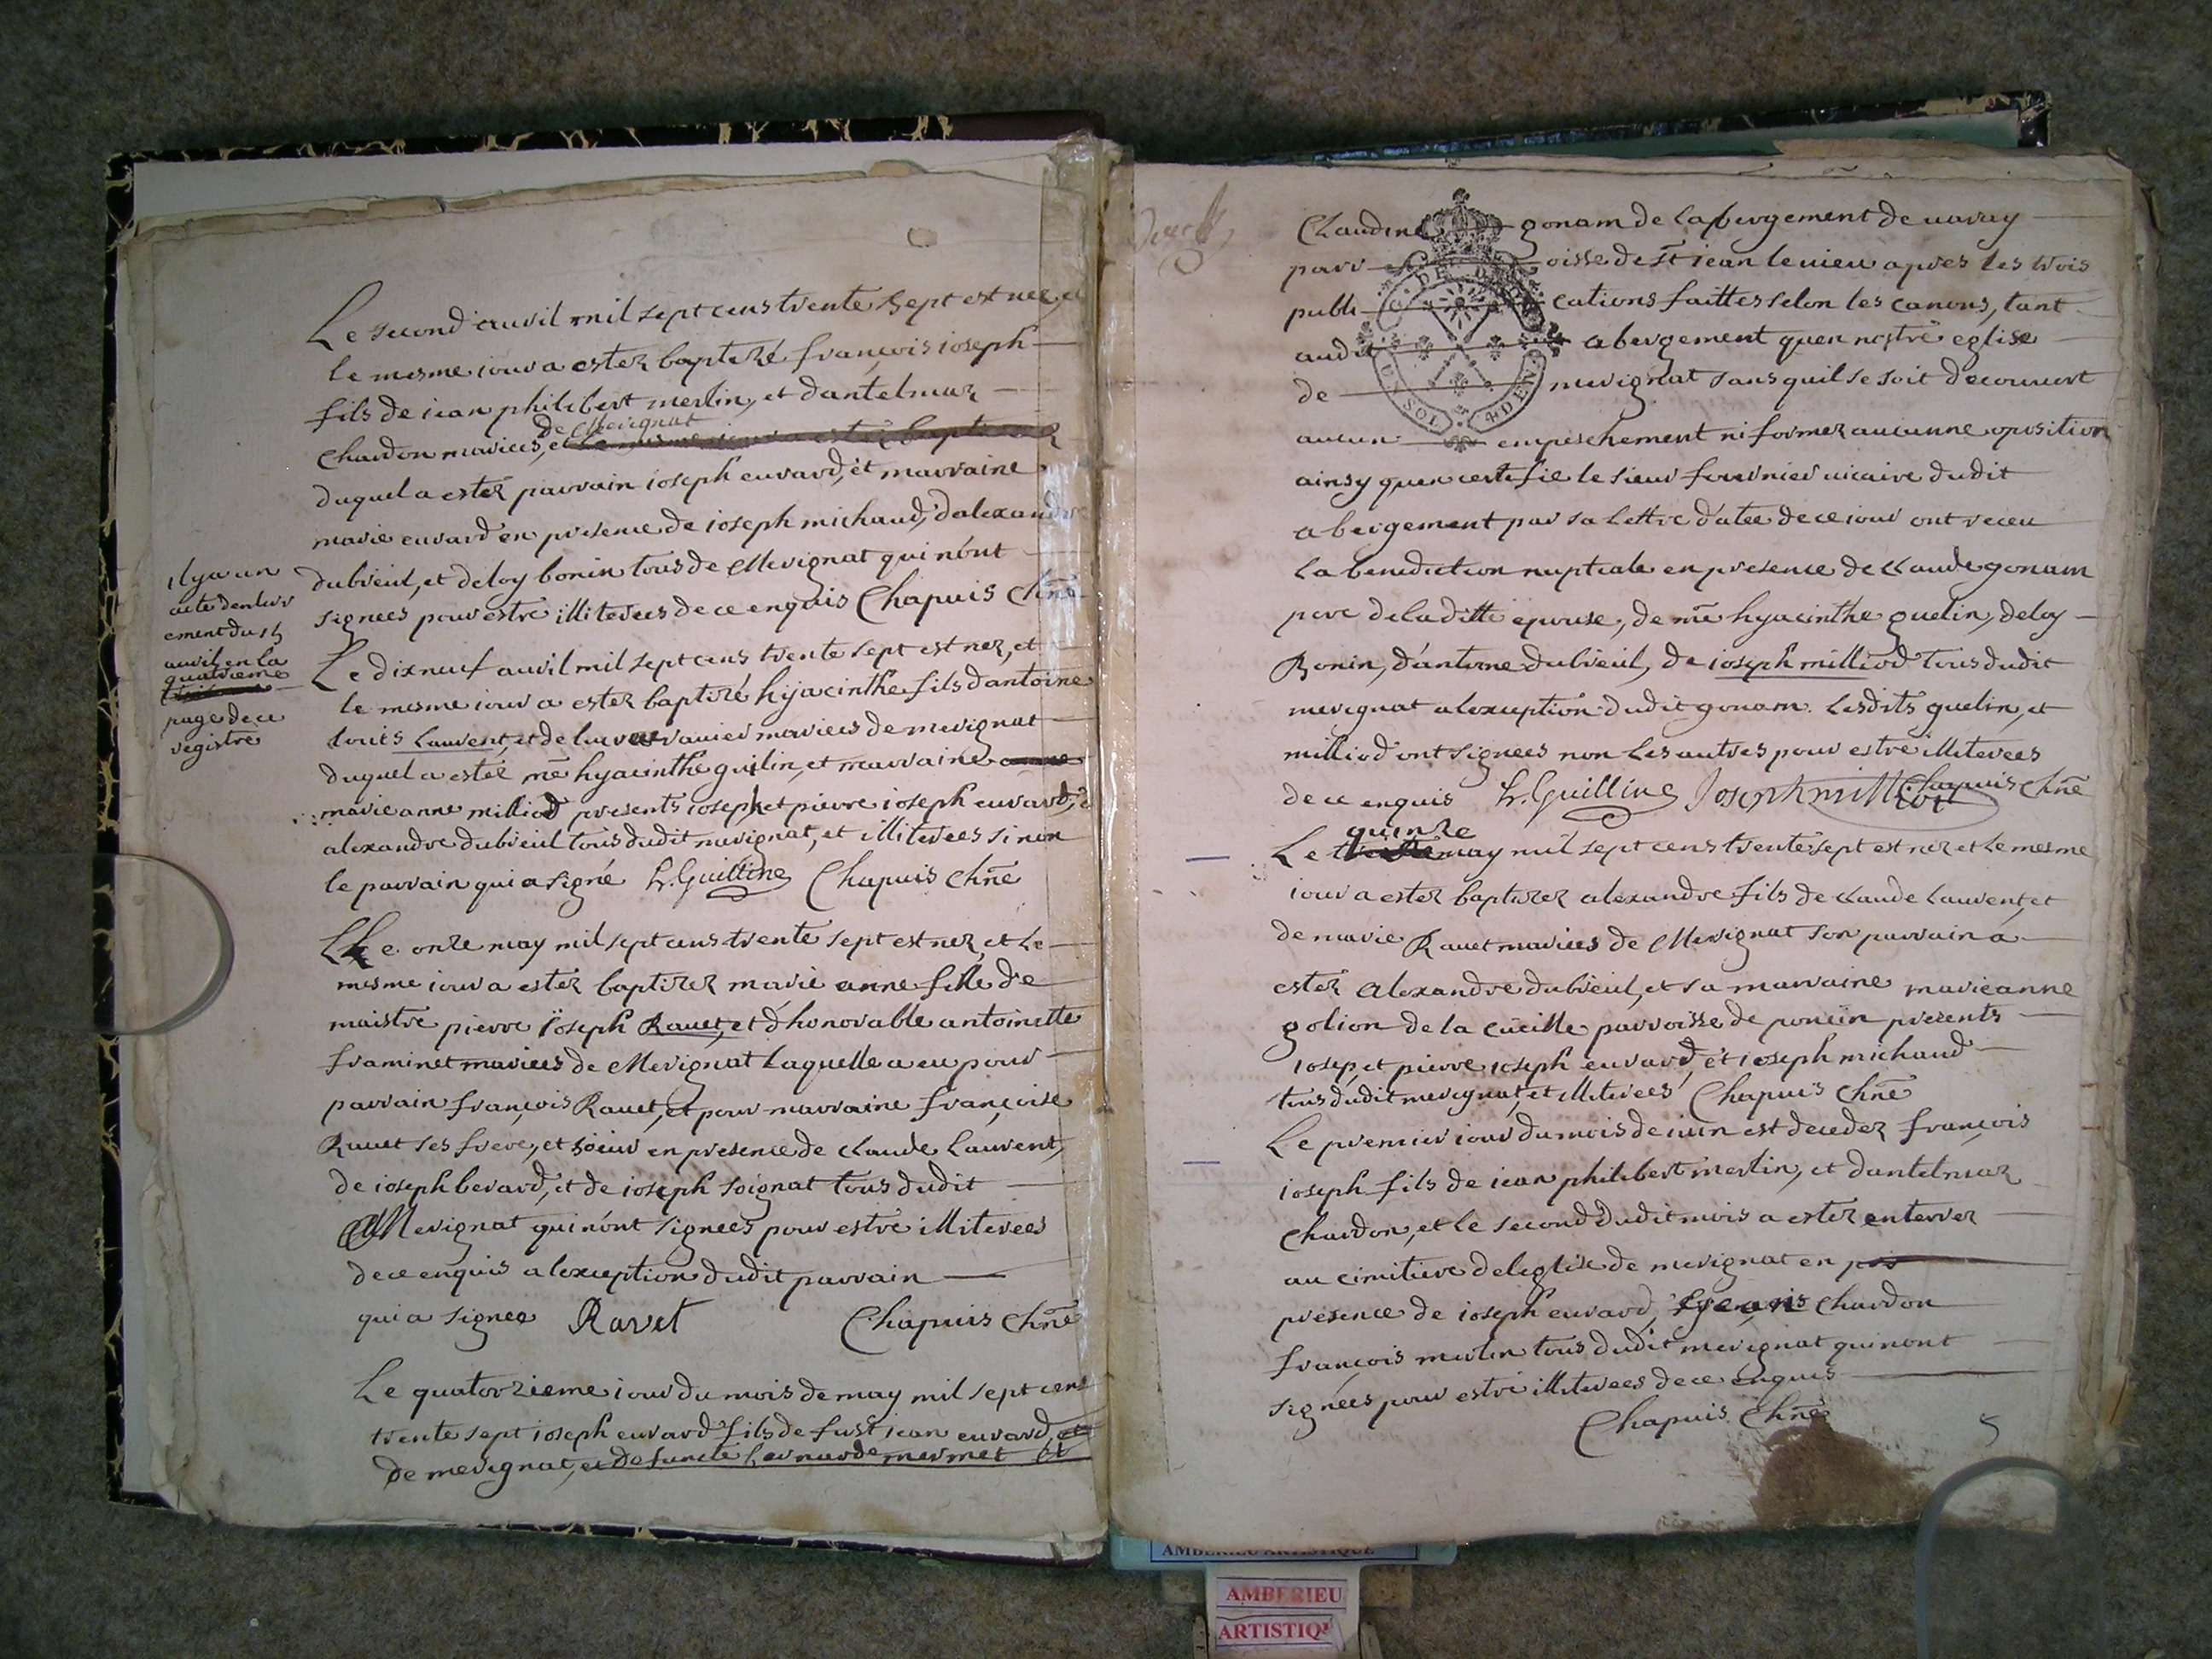 Il y a un
acte denterr
ement du 15
avril en la
quatrieme
page de ce
registre
Le second avril mil sept cens trente sept est nee, et
le mesme iour a ester baptizé françois ioseph
fils de iean philibert merlin, et dantelmaz
chardon mariees, et de Merignat
duquel a ester parrain ioseph euvard, et marraine
marie euvard en presence de ioseph michaud, dalexandre
dubreul, et deloy bonin tous de Merignat qui nónt
signees pour estre illiterees de ce enquis Chapuis Chñe
Le dixneuf avril mil sept cens trente sept est nez, et
le mesme iour a ester baptizé hyacinthe fils dantoine
louis Laurent, et de varanier mariees de merignat
duquel a estée mẽ hyacinthe guilin, et marraine
marie anne milliod presents ioseph et pierre ioseph euvard, et
alexandre dubreul tous dudit merignat, et illiterees sinon
le parrain qui a signé h. Guilline Chapuis Chñe
Le onze may mil sept cens trente sept est nez, et le
mesme iour a ester baptizez marie anne fille de
maistre pierre ioseph Rauet, et d'honorable antoinette
framinet mariees de Merignat Laquelle a eu pour
parrain françois Rauet, et pour marraine françoise
Rauet ses frere, et soeur en presence de claude Laurent,
de ioseph berard, et de ioseph soignat tous dudit
Merignat qui nónt signees pour estre illiterees
de ce enquis a lexception dudit parrain
qui a signee Ravet Chapuis Chñe
Le quatorzieme iour du mois de may mil sept cens
trente sept ioseph euvard fils de fust iean euvard, et
de merignat, et defuncte bernarde mermet et
Claudine gonam de Labergement de varey
parroisse de st iean le vieu apres les trois
publications faittes selon les canons, tant
audit abergement quen nostre eglise
de merignat sans quil se soit decouvert
aucun empeschement ni former aucunne oposition
ainsy quen certifie le sieur fournier vicaire dudit
abergement par sa Lettre datée de ce iour ont receu
La benediction nuptiale en presence de claude gonam
pere de laditte epouse, de mẽ hyacinthe guelin, deloy
Bonin, dántoine dubreul, de ioseph milliod tous dudit
merignat a lexception dudit gonam. Lesdits guelin, et
milliod ont signees non les autres pour estre illiterees
de ce enquis h. Guilline Joseph milliod Chapuis Chñe
quinze
Le may mil sept cens trente sept est nez et le mesme
iour a ester baptizez alexandre fils de claude Laurent, et
de marie Rauet mariees de Merignat son parrain a
ester alexandre dubreul, et sa marraine marieanne
golion de la cueille parroisse de poncin presents
iosep, et pierre ioseph euvard, et ioseph michaud
tous dudit merignat, et illiterees Chapuis Chñe
Le premier iour du mois de iuin est decedez françois
ioseph fils de iean philibert merlin, et dantelmaz
chardon, et le second dudit mois a ester enterrer
au cimitiere deleglise de merignat en
presence de ioseph euvard, chardon
françois merlin tous dudit merignat qui nont
signées pour estre illiterees de ce enquis
Chapuis Chñe
5
AMBERIEU ARTISTIQUE
AMBERIEU
ARTISTIQ